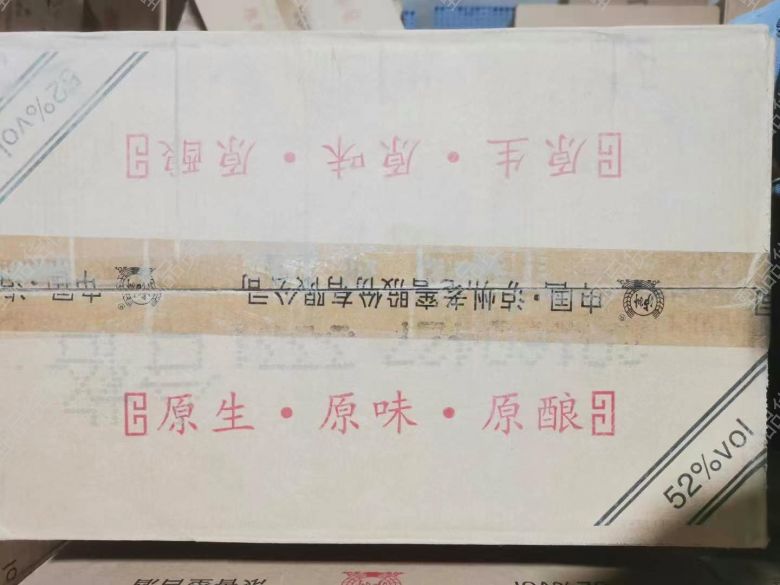 52%vol
原生·原味·原酿
中国·泸州老窖股份有限公司
中国·泸
原生·原味·原酿
52%vol